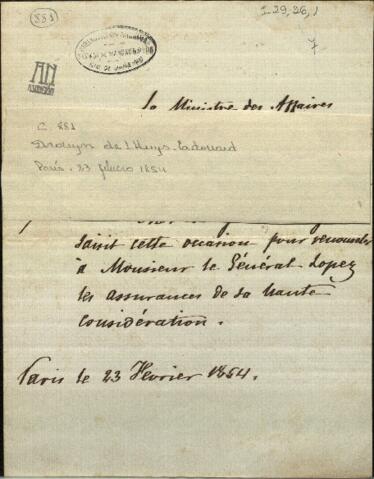 (881)
I-29,26,1
AN
ASUNCIÓN
Le Ministre des Affaires
C. 881
Drouyn de L'Huys. Edouard
París. 23 febrero 1854
saisit cette occasion pour renouveler
à Monsieur le Général Lopez
les assurances de sa haute
considération.
Paris le 23 Février 1854.